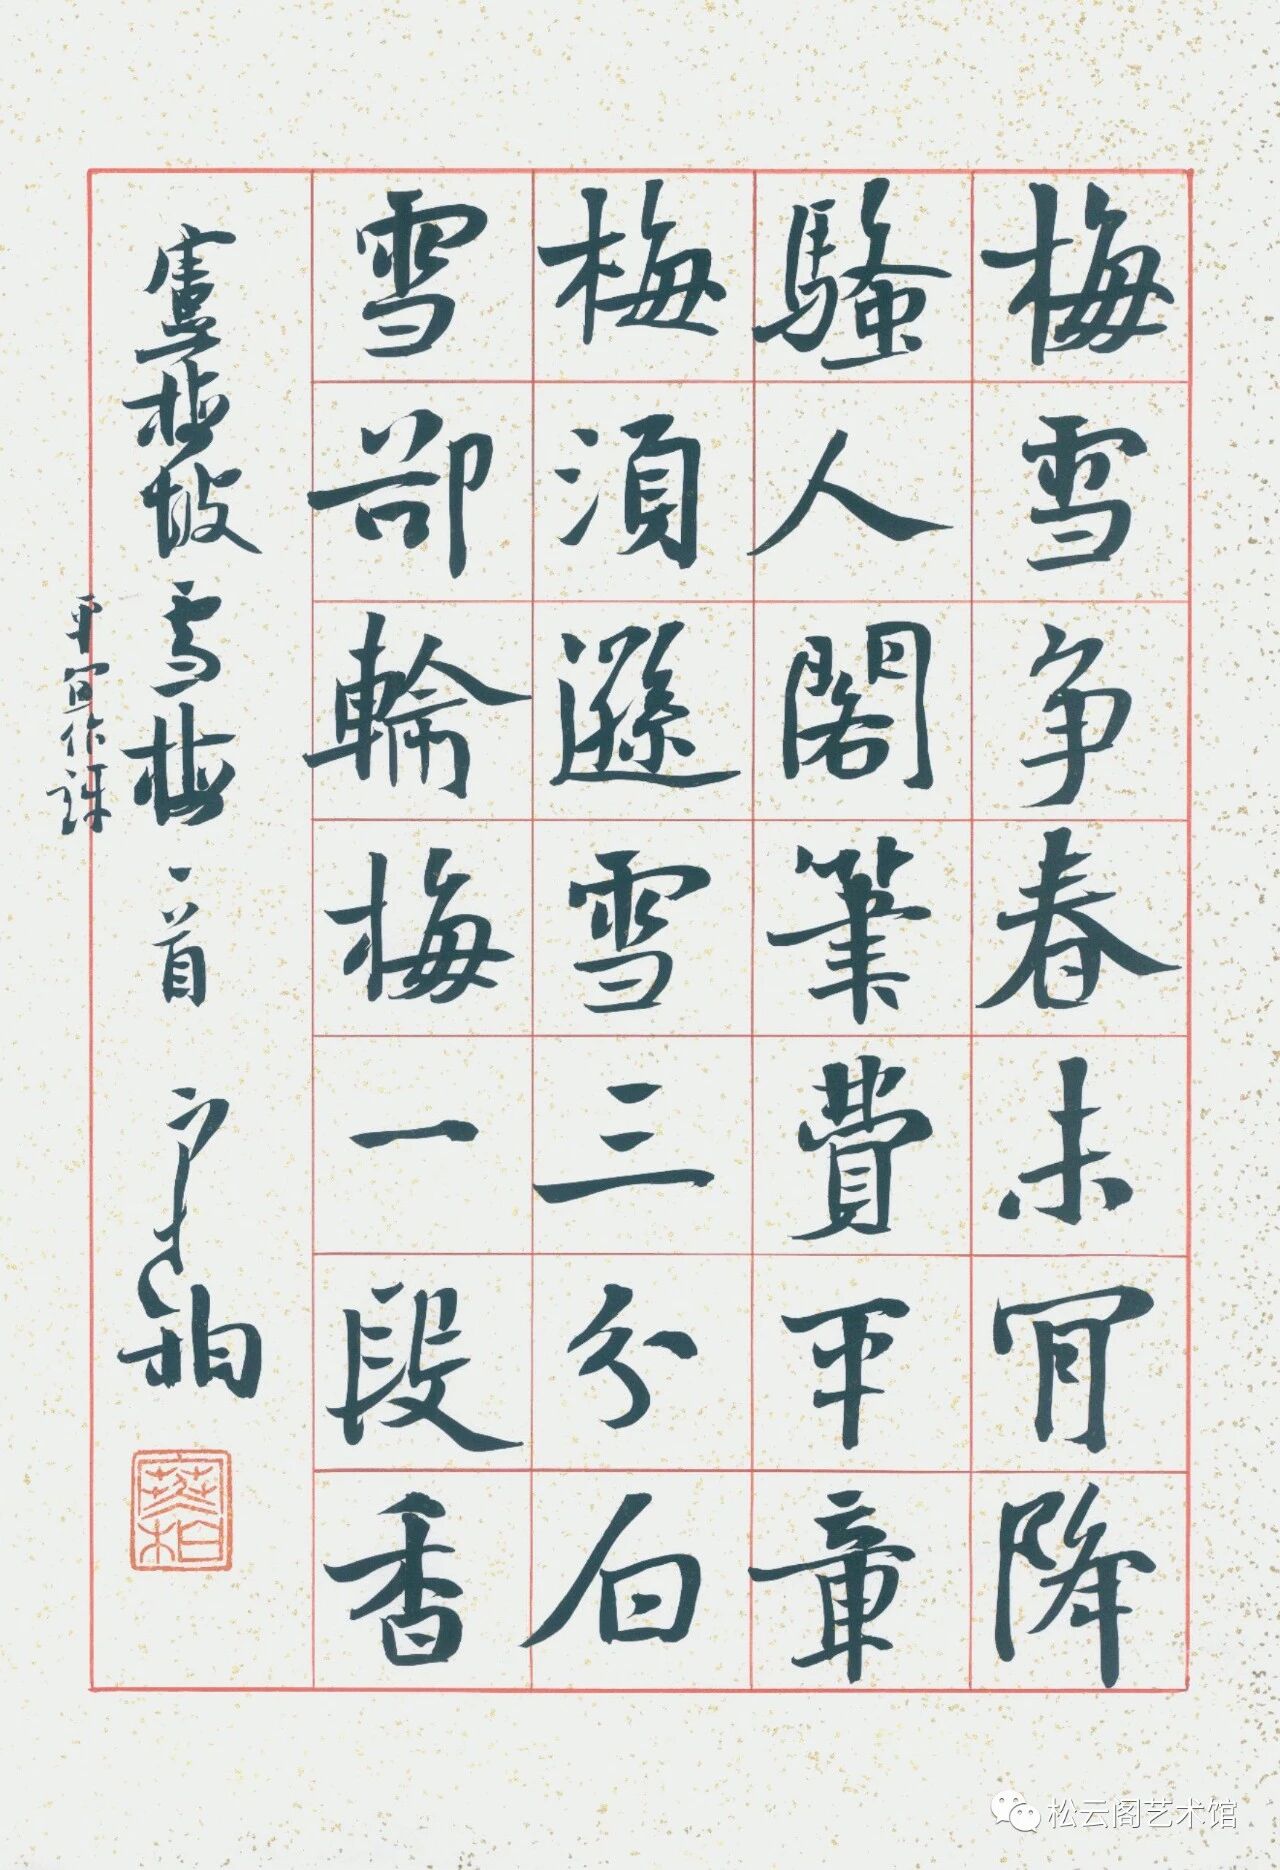 梅雪争春未肯降
騷人閣筆費平章
梅須遜雪三分白
雪卻輸梅一段香
盧梅坡雪梅一首
松云阁艺术馆